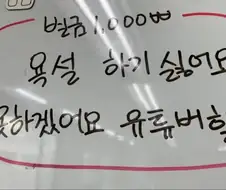 벌금 1,000₩
욕설 하기 싫어요
못하겠어요 유튜버